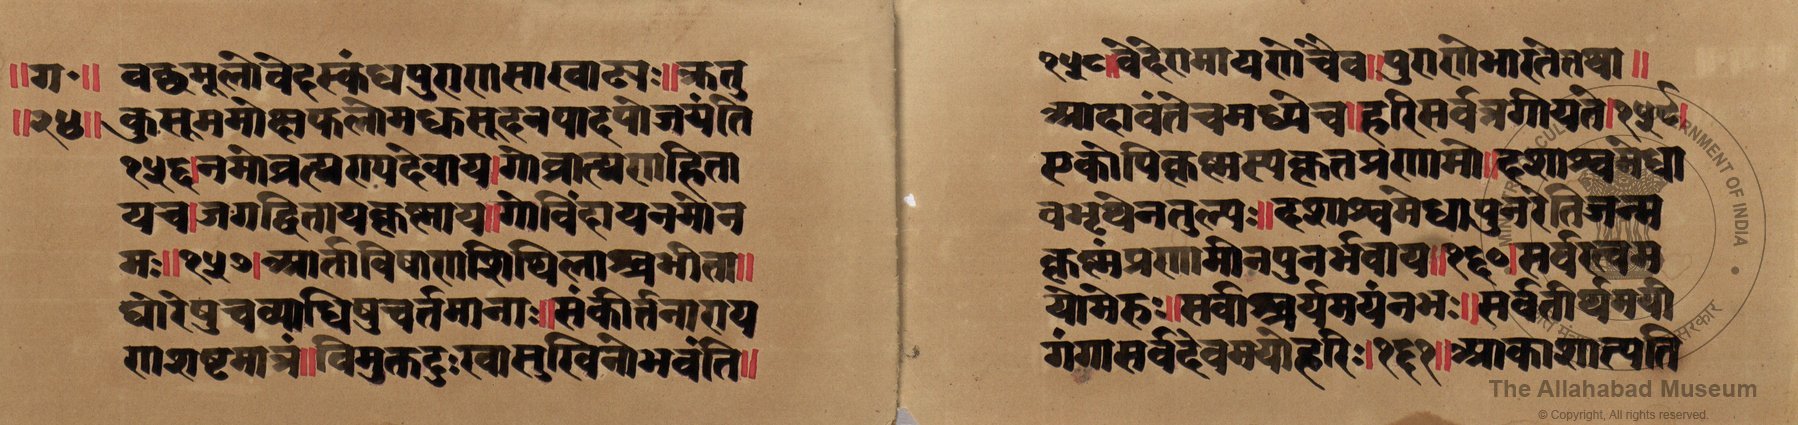 ॥ग॰॥ वद्धमूलोवेदस्कंधपुराणसाखाढ्यः॥क्रतु
॥२५॥ कुसूममोक्षफलोमधुसूदनपादपोजयंति
१५६।नमोव्रत्यण्यदेवाय।गोव्रात्यणहिता
यच।जगद्धितायकृष्णाय॥गोविंदायनमोन
मः॥१५७।आर्ताविषाणाशिथिलाश्चभीता॥
घोरेषुचव्याधिषुवर्तमानाः॥संकीर्तनाराय
णशष्टमात्रं॥विमुक्तदुःखासुखिनोभवंति॥
१५८॥वेदेरामायणेचैव॥पुराणेभारतेतथा॥
आदावंतेचमध्येच॥हरिसर्वत्रगीयते।१५९।
एकोपिकृष्णस्यकृतप्रणामो॥दशाश्वमेधा
वभृथेनतुल्यः॥दशाश्वमेधापुनरेतिजन्म
कृष्णंप्रणामीनपुनर्भवाय॥१६०।सर्वरत्नम
योमेरुः॥सर्वाश्चर्यमयंनभः॥सर्वतीर्थमयी
गंगासर्वदेवमयोहरिः।१६१॥आकाशात्पति
The Allahabad Museum
© Copyright, All rights reserved.